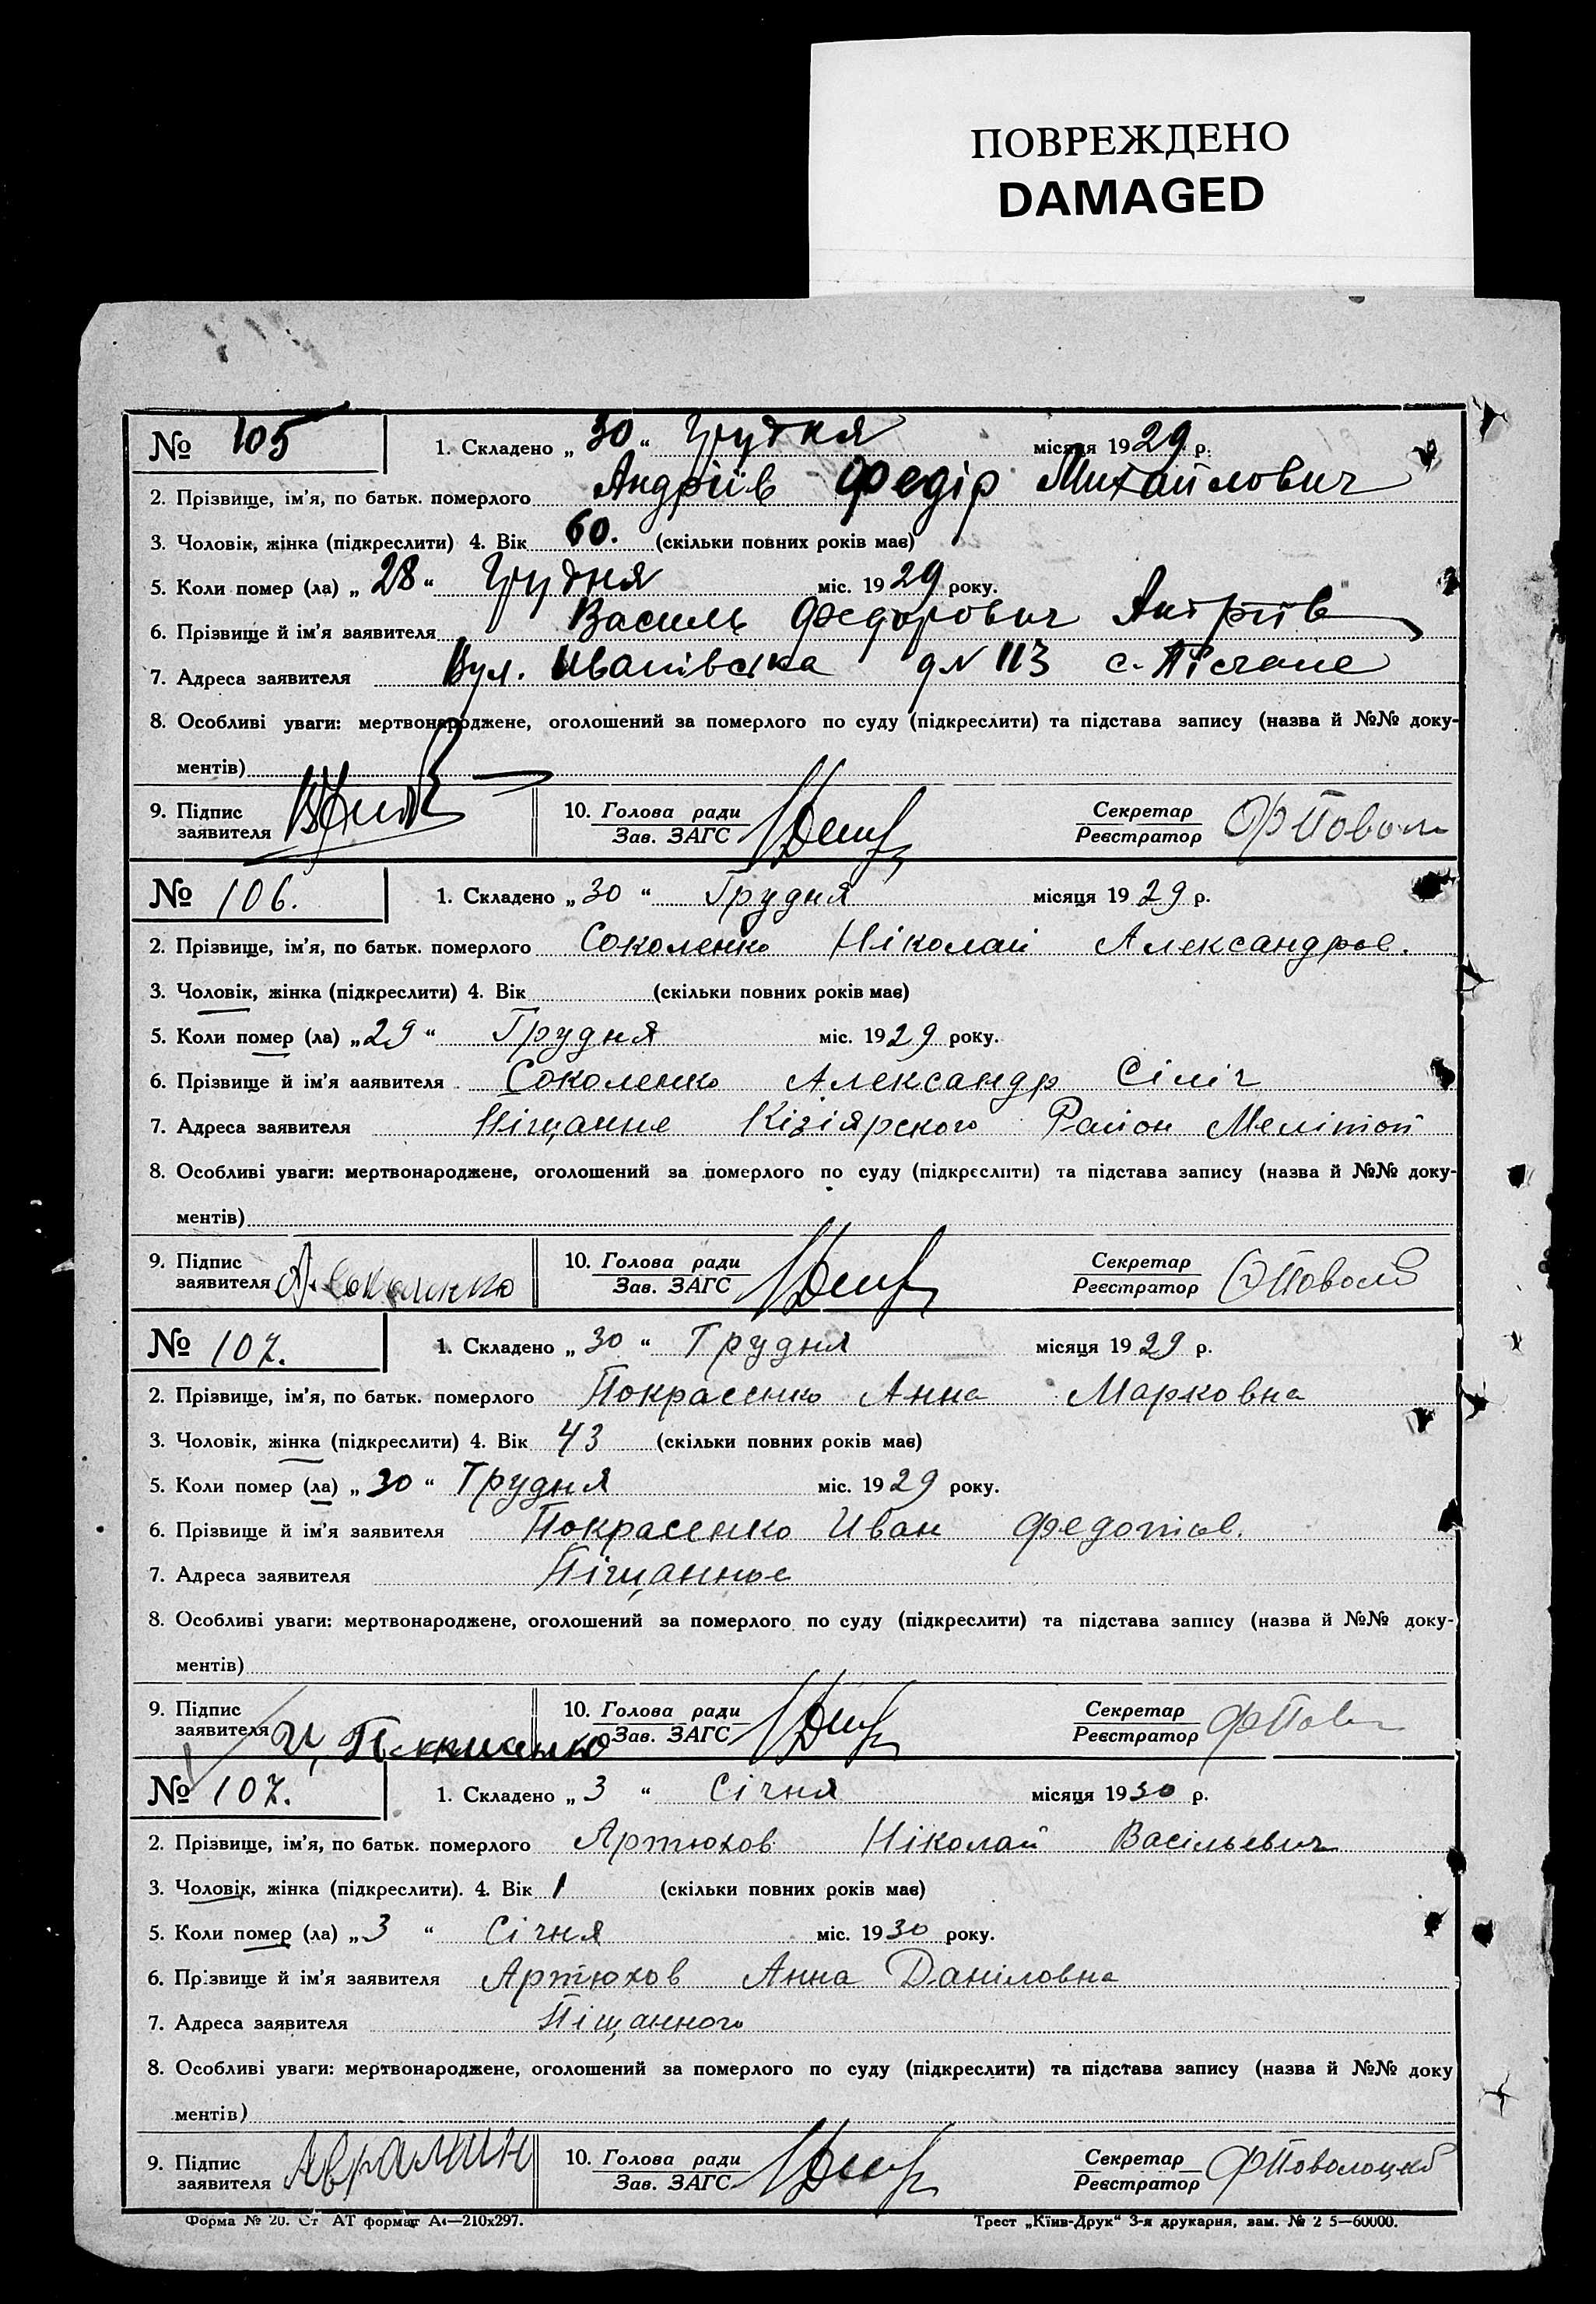 ПОВРЕЖДЕНО
DAMAGED
№ 105 1. Складено „ 30 “ Грудня місяця 1929 р.
2. Прізвище, ім’я, по батьк. померлого Андріїв Федір Михайлович
3. Чоловік, жінка (підкреслити) 4. Вік 60. (скільки повних років має)
5. Коли помер (ла) „ 28 “ Грудня міс. 1929 року.
6. Прізвище й ім’я заявителя Василь Федорович Андріїв
7. Адреса заявителя Вул. Иванівська д N 113 с. Пісчане
8. Особливі уваги: мертвонароджене, оголошений за померлого по суду (підкреслити) та підстава запису (назва й №№ доку-
ментів)
9. Підпис заявителя 10. Голова ради Зав. ЗАГС Секретар Реєстратор
№ 106. 1. Складено „ 30 “ Грудня місяця 1929 р.
2. Прізвище, ім’я, по батьк. померлого Соколенко Ніколай Александров.
3. Чоловік, жінка (підкреслити) 4. Вік (скільки повних років має)
5. Коли помер (ла) „ 29 “ Грудня міс. 1929 року.
6. Прізвище й ім’я заявителя Соколенко Александр Сіліч
7. Адреса заявителя Піщанне Кізіярского Район Мелітоп
8. Особливі уваги: мертвонароджене, оголошений за померлого по суду (підкреслити) та підстава запису (назва й №№ доку-
ментів)
9. Підпис заявителя А. Соколенко 10. Голова ради Зав. ЗАГС Секретар Реєстратор
№ 107. 1. Складено „ 30 “ Грудня місяця 1929 р.
2. Прізвище, ім’я, по батьк. померлого Покрасенко Анна Марковна
3. Чоловік, жінка (підкреслити) 4. Вік 43 (скільки повних років має)
5. Коли помер (ла) „ 30 “ Грудня міс. 1929 року.
6. Прізвище й ім’я заявителя Покрасенко Иван Федотов.
7. Адреса заявителя Піщанное
8. Особливі уваги: мертвонароджене, оголошений за померлого по суду (підкреслити) та підстава запису (назва й №№ доку-
ментів)
9. Підпис заявителя 10. Голова ради Зав. ЗАГС Секретар Реєстратор
№ 107. 1. Складено „ 3 “ Січня місяця 1930 р.
2. Прізвище, ім’я, по батьк. померлого Артюхов Ніколай Васільевич
3. Чоловік, жінка (підкреслити). 4. Вік 1 (скільки повних років має)
5. Коли помер (ла) „ 3 “ Січня міс. 1930 року.
6. Прізвище й ім’я заявителя Артюхов Анна Даніловна
7. Адреса заявителя Піщанного
8. Особливі уваги: мертвонароджене, оголошений за померлого по суду (підкреслити) та підстава запису (назва й №№ доку
ментів)
9. Підпис заявителя 10. Голова ради Зав. ЗАГС Секретар Реєстратор
Форма № 20. Ст АТ формат А4—210х297. Трест „Київ-Друк“ 3-я друкарня, зам. № 2 5—60000.